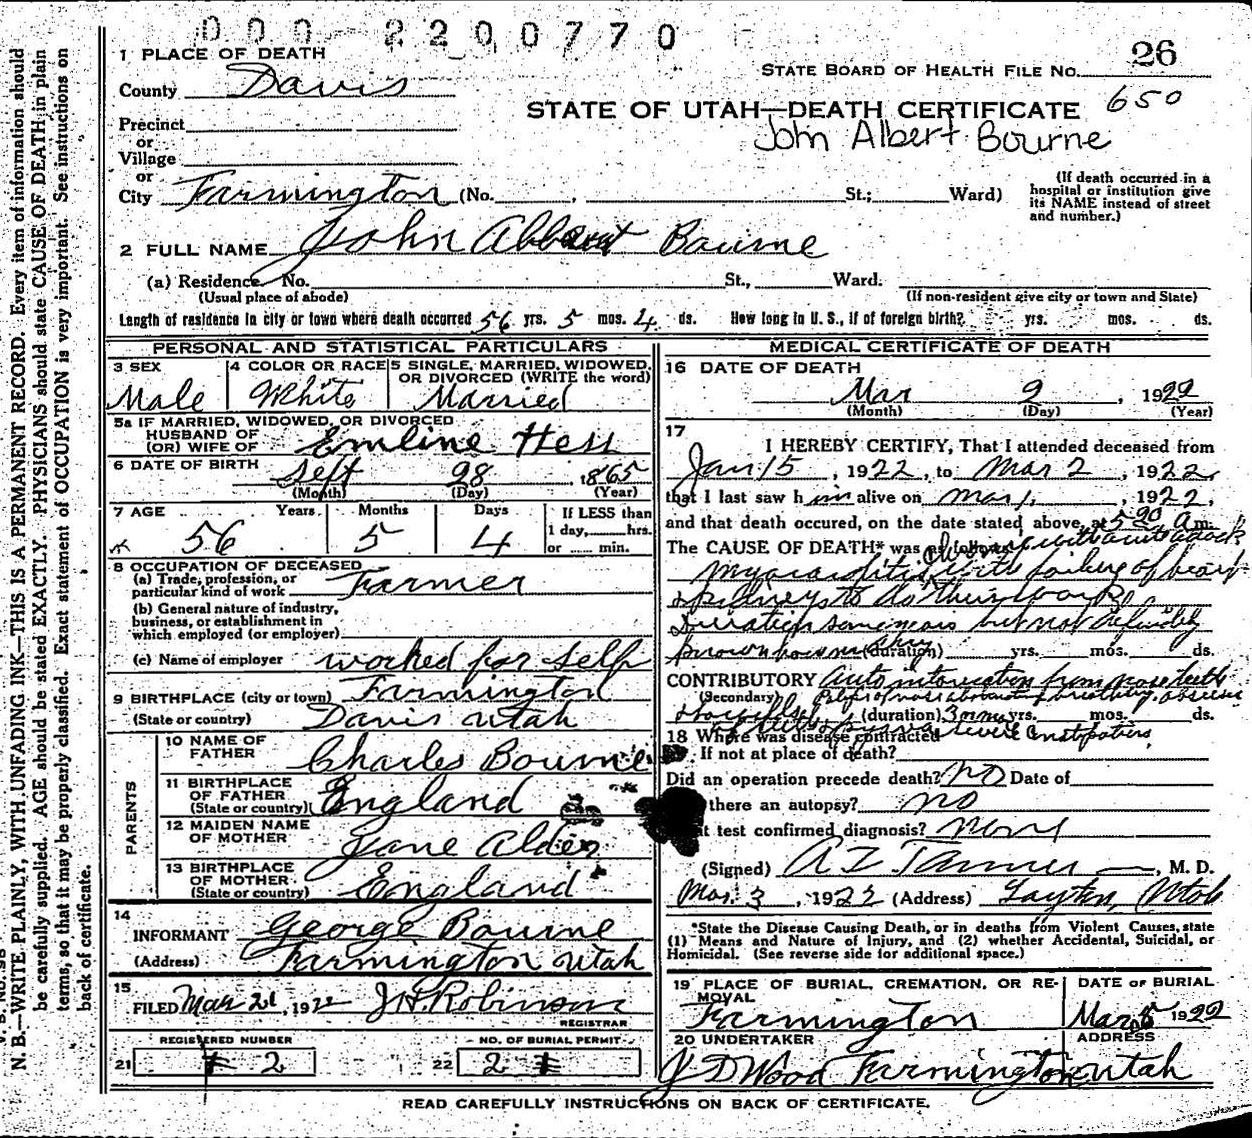 000 2200770
26
1 PLACE OF DEATH
STATE BOARD OF HEALTH FILE NO.
County Davis
STATE OF UTAH—DEATH CERTIFICATE 650
Precinct
John Albert Bourne
or
Village
or
City Farmington (No. , St.; Ward)
(If death occurred in a
hospital or institution give
its NAME instead of street
and number.)
2 FULL NAME John Albert Bourne
(a) Residence No. St., Ward.
(Usual place of abode)
(If non-resident give city or town and State)
Length of residence in city or town where death occurred 56 yrs. 5 mos. 4 ds. How long in U. S., if of foreign birth? yrs. mos. ds.
PERSONAL AND STATISTICAL PARTICULARS
3 SEX
Male
4 COLOR OR RACE
White
5 SINGLE, MARRIED, WIDOWED,
OR DIVORCED (WRITE the word)
Married
5a IF MARRIED, WIDOWED, OR DIVORCED
HUSBAND OF
(OR) WIFE OF Emline Hess
6 DATE OF BIRTH Sept 28, 1865
(Month) (Day) (Year)
7 AGE Years Months Days
56 5 4
If LESS than
1 day, hrs.
or min.
8 OCCUPATION OF DECEASED
(a) Trade, profession, or
particular kind of work Farmer
(b) General nature of industry,
business, or establishment in
which employed (or employer)
(c) Name of employer worked for self
9 BIRTHPLACE (city or town) Farmington
(State or country) Davis Utah
PARENTS
10 NAME OF
FATHER Charles Bourne
11 BIRTHPLACE
OF FATHER
(State or country) England
12 MAIDEN NAME
OF MOTHER Jane Alder
13 BIRTHPLACE
OF MOTHER
(State or country) England
14
INFORMANT George Bourne
(Address) Farmington Utah
15
FILED Mar 21, 1922 J H Robinson
REGISTRAR
REGISTERED NUMBER
21 2
NO. OF BURIAL PERMIT
22 2
MEDICAL CERTIFICATE OF DEATH
16 DATE OF DEATH
Mar 2, 1922
(Month) (Day) (Year)
17
I HEREBY CERTIFY, That I attended deceased from
Jan 15, 1922, to Mar 2, 1922,
that I last saw him alive on Mar 1, 1922,
and that death occured, on the date stated above, at 5 am.
The CAUSE OF DEATH* was as follows: with acute attack
Myocarditis with failure of heart
& kidneys to do their work
Duration some years but not definitely
known how many (duration) yrs. mos. ds.
CONTRIBUTORY Auto intoxication from nose teeth
(Secondary) abscess
(duration) 3 or more yrs. mos. ds.
severe constipation
18 Where was disease contracted
If not at place of death?
Did an operation precede death? no Date of
there an autopsy? no
test confirmed diagnosis? none
(Signed) A Z Tanner, M. D.
Mar. 3, 1922 (Address) Layton, Utah
*State the Disease Causing Death, or in deaths from Violent Causes, state
(1) Means and Nature of Injury, and (2) whether Accidental, Suicidal, or
Homicidal. (See reverse side for additional space.)
19 PLACE OF BURIAL, CREMATION, OR RE-
MOVAL
Farmington
DATE OF BURIAL
Mar 5 1922
20 UNDERTAKER
ADDRESS
J D Wood Farmington Utah
READ CAREFULLY INSTRUCTIONS ON BACK OF CERTIFICATE.
N. B.—WRITE PLAINLY, WITH UNFADING INK—THIS IS A PERMANENT RECORD. Every item of information should
be carefully supplied. AGE should be stated EXACTLY. PHYSICIANS should state CAUSE OF DEATH in plain
terms, so that it may be properly classified. Exact statement of OCCUPATION is very important. See instructions on
back of certificate.